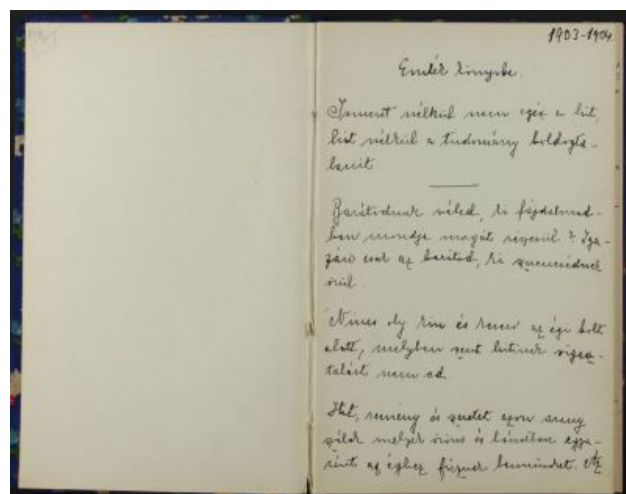 1903-1904
Emlék könyvbe.
Ismeret nélkül nem egész a hit,
hit nélkül a tudomány boldogta-
lanit
Barátodnak véled, ki fájdalmad-
ban mondja magát részesül? Iga-
zán csak az barátod, ki szerencsédnek
örül.
Nincs oly kín és keserv az égi bolt
alatt, melyben szent hitünk vigasz-
talást nem ad.
Hit, remény és szeretet azon arany
szálak melyek öröm és bánatban egya-
ránt az éghez fűznek bennünket. Az